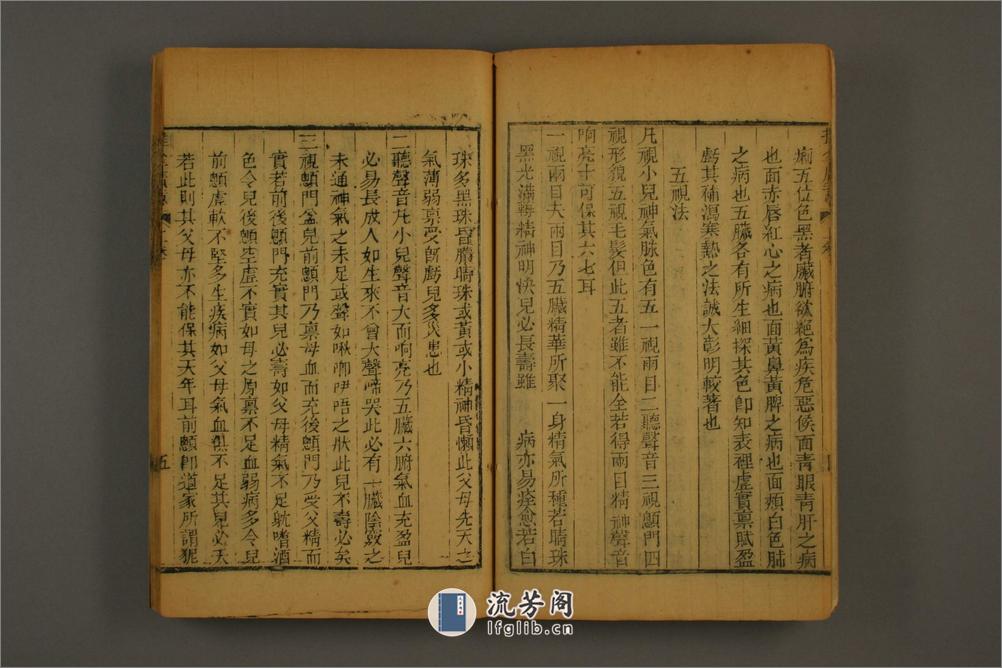 痢五位色黑者臟腑欲絕為疾危惡候面青眼青肝之病
也面赤唇紅心之病也面黃鼻黃脾之病也面頰白色肺
之病也五臟各有所生細探其色卽知表裡虛實禀賦盈
虧其補瀉寒熱之法誠大彰明較著也
五視法
凡視小兒神氣脉色有五一視兩目二聽聲音三視顖門四
視形貌五視毛髮但此五者雖不能全若得兩目精神聲音
响亮十可保其六七耳
一視兩目夫兩目乃五臟精華所聚一身精氣所種若睛珠
黑光滿輪精神明快兒必長壽雖 病亦易痊愈若白
珠多黑珠昏朦睛珠或黃或小精神昏懶此父母先天之
氣薄弱禀受旣虧兒多災患也
二聽聲音凡小兒聲音大而响亮乃五臟六腑氣血充盈兒
必易長成人如生來不曾大聲啼哭此必有一臟陰竅之
未通神氣之未足或聲如啾唧咿唔之狀此兒不壽必矣
三視顖門盆兒前顖門乃禀母血而充後顖門乃受父精而
實若前後顖門充實其兒必壽如父母精氣不足躭嗜酒
色令兒後顖空虛不實如母之原禀不足血弱病多令兒
前顖虛軟不堅多生疾病如父母氣血俱不足其兒必夭
若此則其父母亦不能保其天年耳前顖卽道家所謂泥
五
流芳阁
lfglib.cn